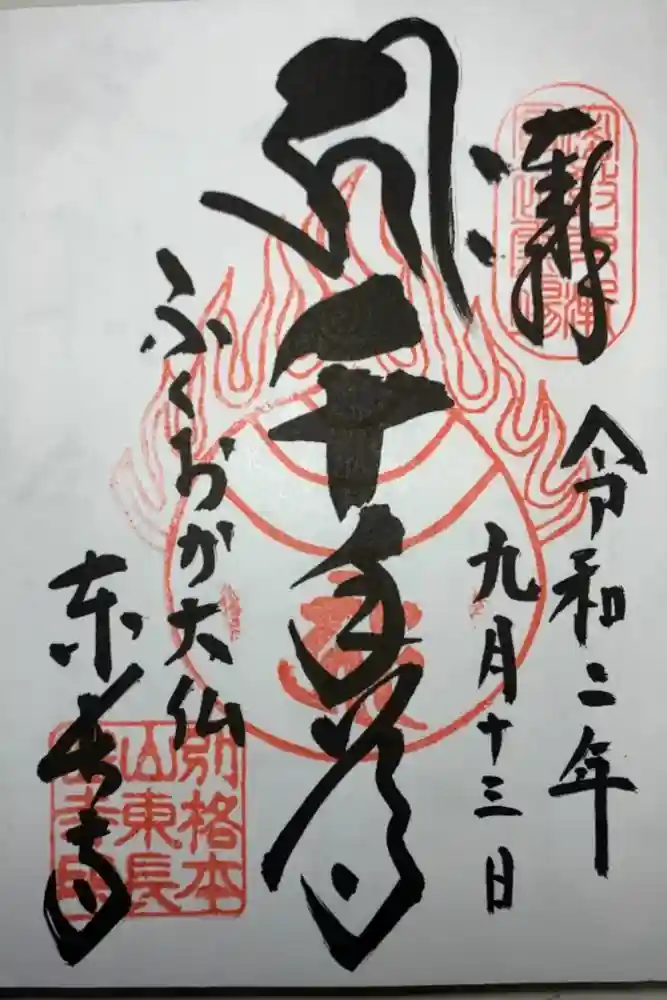 奉拝
令和二年
九月十三日
千手尊
ふくおか大仏
東長寺
別格本
山東長